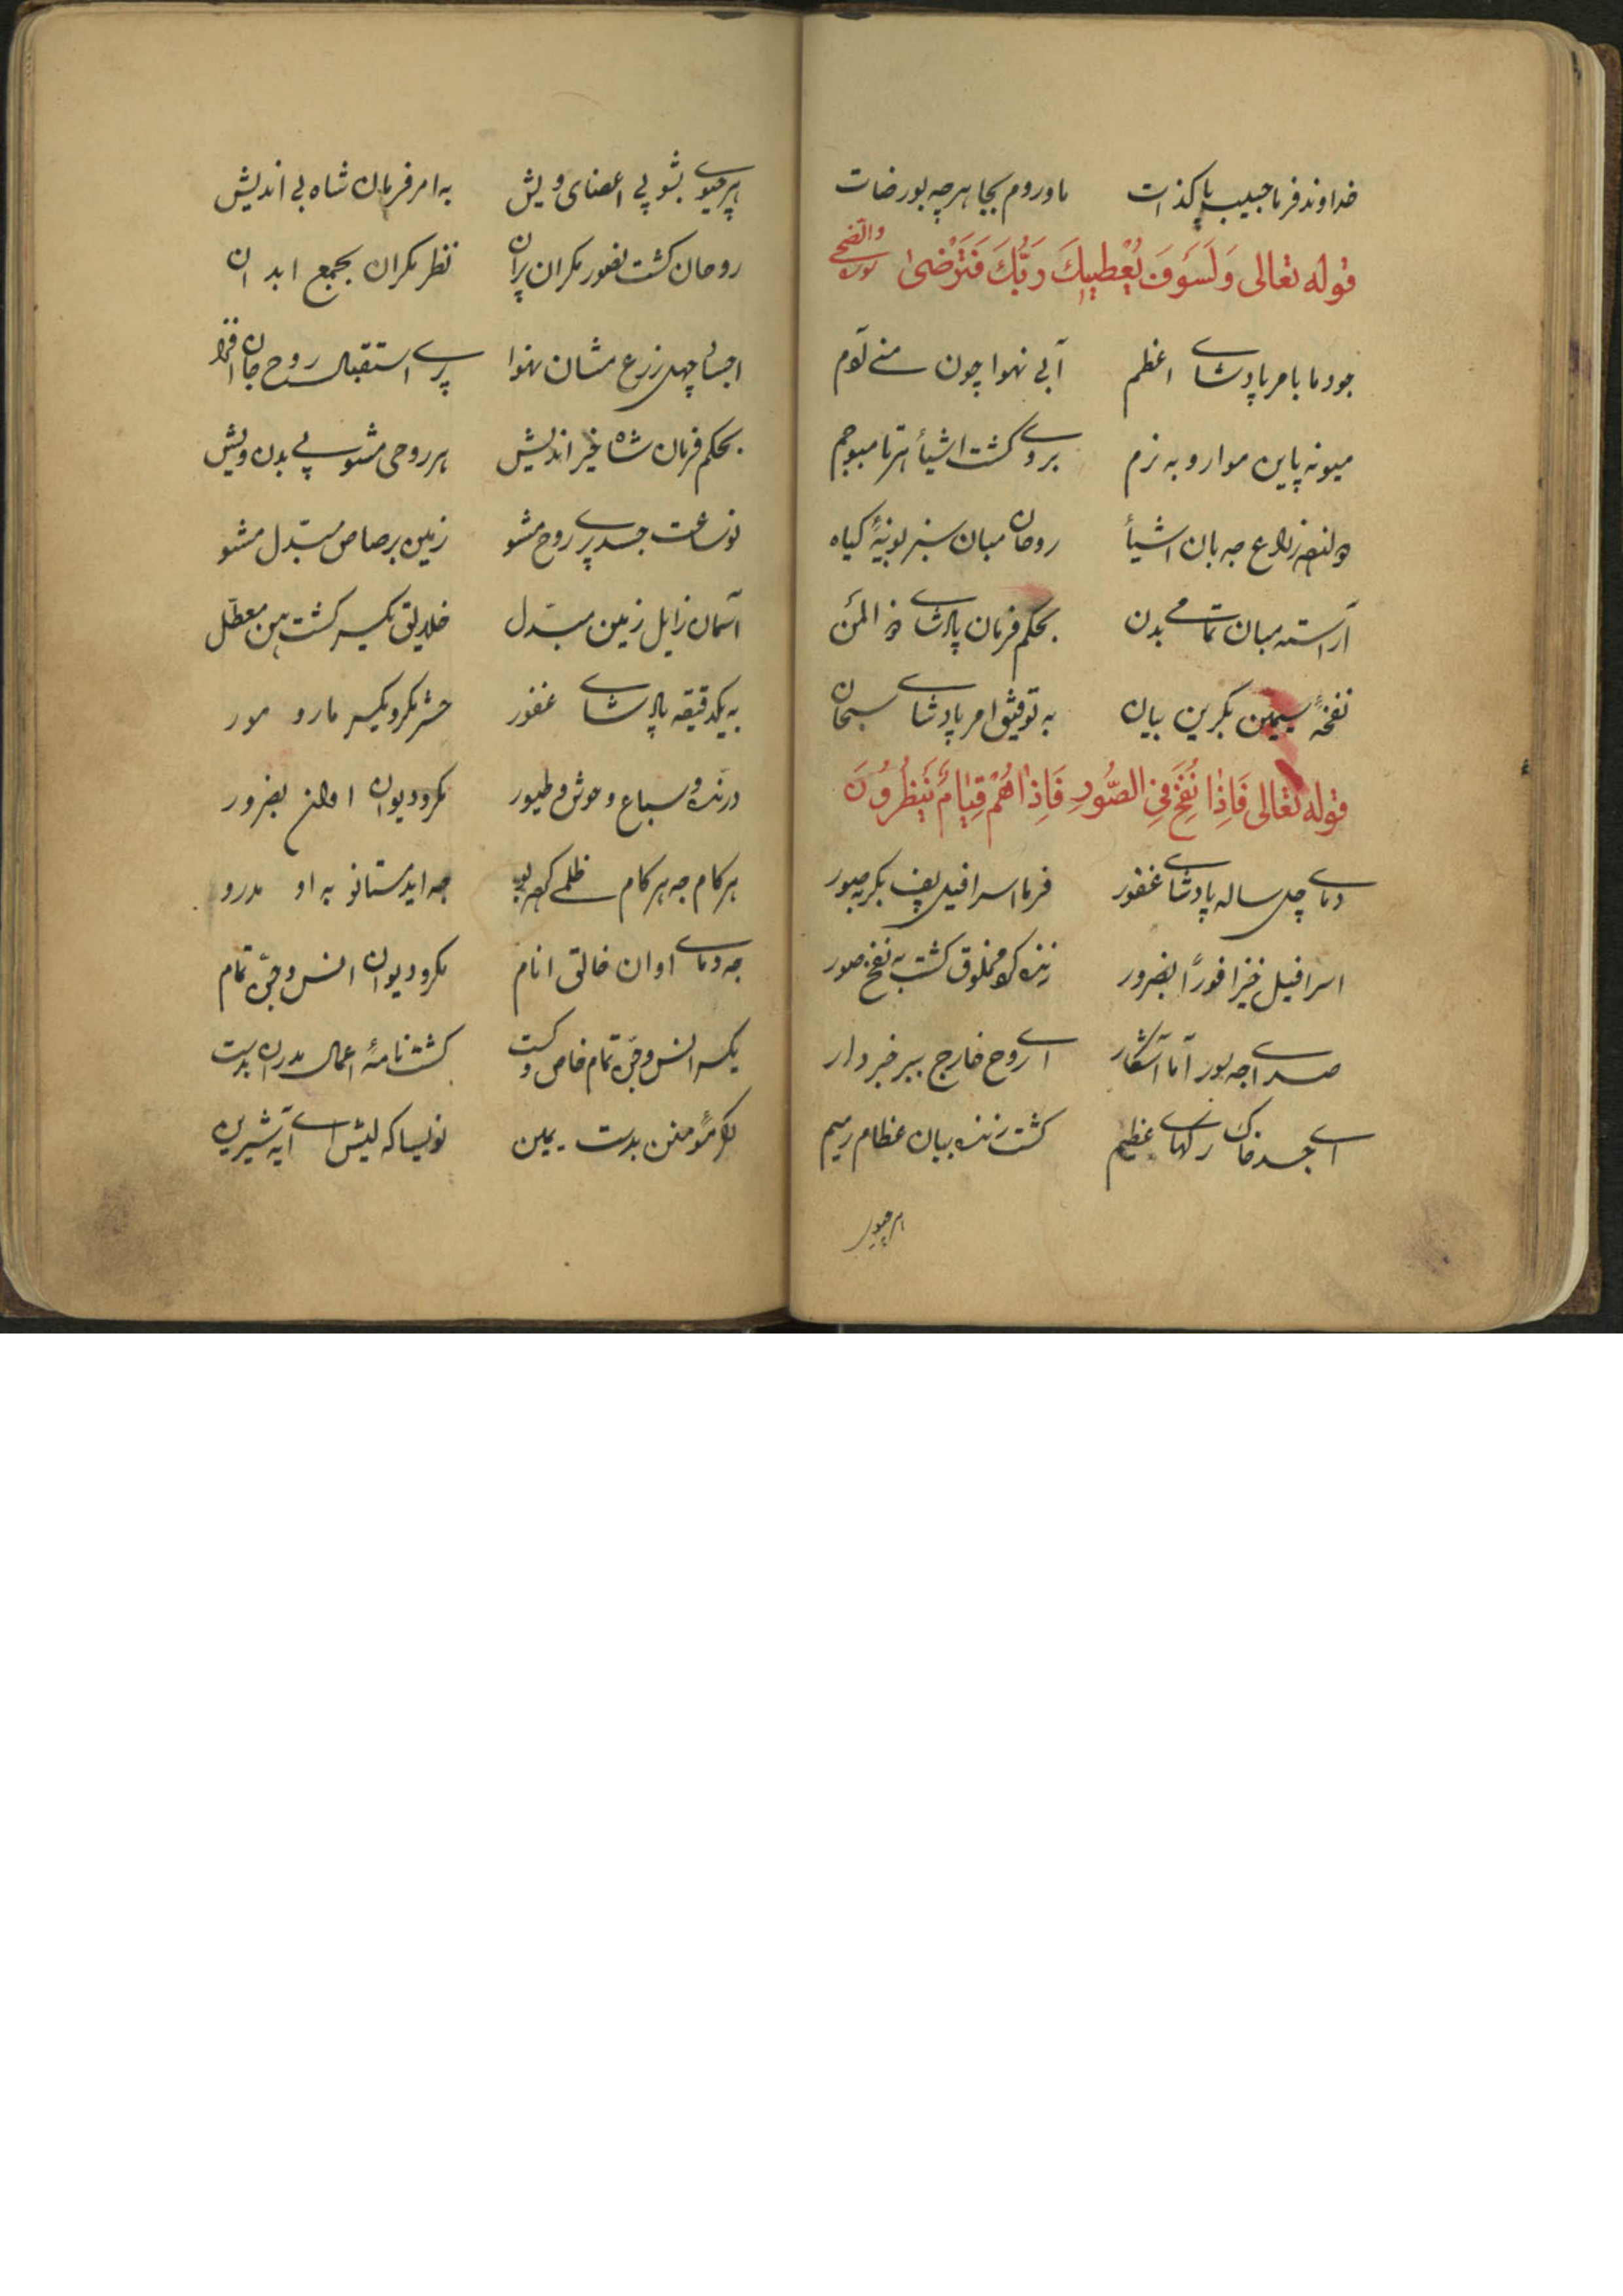 خداوند فرما حبیب پاکذات ماوروم بجا هرچه بو رضات
قوله تعالی وَلَسَوْفَ یُعْطِیكَ رَبُّكَ فَتَرْضیٰ سوره والضحی
جو دما با مر پادشای اعظم آبی نهوا چون منی آدم
میونه پاین موارو به نزم بروی گشت اشیأ هرتا مبوجم
روحان مبان سبز بونیهٔ گیاه
آراسته مبان تمامی بدن بحکم فرمان پادشای ذ المنن
نفخهٔ سیمین بکرین بیان به توفیق امر پادشای سبحان
قوله تعالی فَاِذٰا نُفِخَ فِی الصُّورِ فَاِذٰاهُمْ قِیٰامٌ یَنْظُرُونَ
دمای چل ساله پادشای غفور فرما اسرافیل پف بکر به صور
اسرافیل خیزا فوراً بضرور زنده کرد مخلوق گشت به نفخ صور
صدا جه بور آما آشکار ای روح خارج ببر خبردار
ای جسد خاک رگهای عظیم گشت زنده ببان عظام رمیم
هر جیوی
هر جیوی بشو پی اعضای ویش به امر فرمان شاه بی اندیش
روحان گشت بضور مکران پران نظر مکران بجمع ابدان
اجساد چهل زرع مشان نهوا پری استقبال روح جان افزا
بحکم فرمان شاه خیر اندیش هر روحی مشو پی بدن ویش
نو ساعت جسد پری روح مشو زمین برصاص مبدّل مشو
آسمان زایل زمین مبدّل خلایق یکسر گشت بین معطّل
به یکدقیقه پادشای غفور حشر مکرو یکسر مار و مور
درنده و سباع و حوش و طیور مکرو دیوان اولن بضرور
هر کام جه هر کام ظلمی کرده بو جه اید مستانو به او مدرو
جه دمای اوان خالق انام مکرو دیوان انس و جن تمام
یکسر انس و جن تمام خاص و گشت گشت نامهٔ اعمال مدران بدست
گر مؤمنن بدست یمین نویسا که لیش ای آیه شیرین